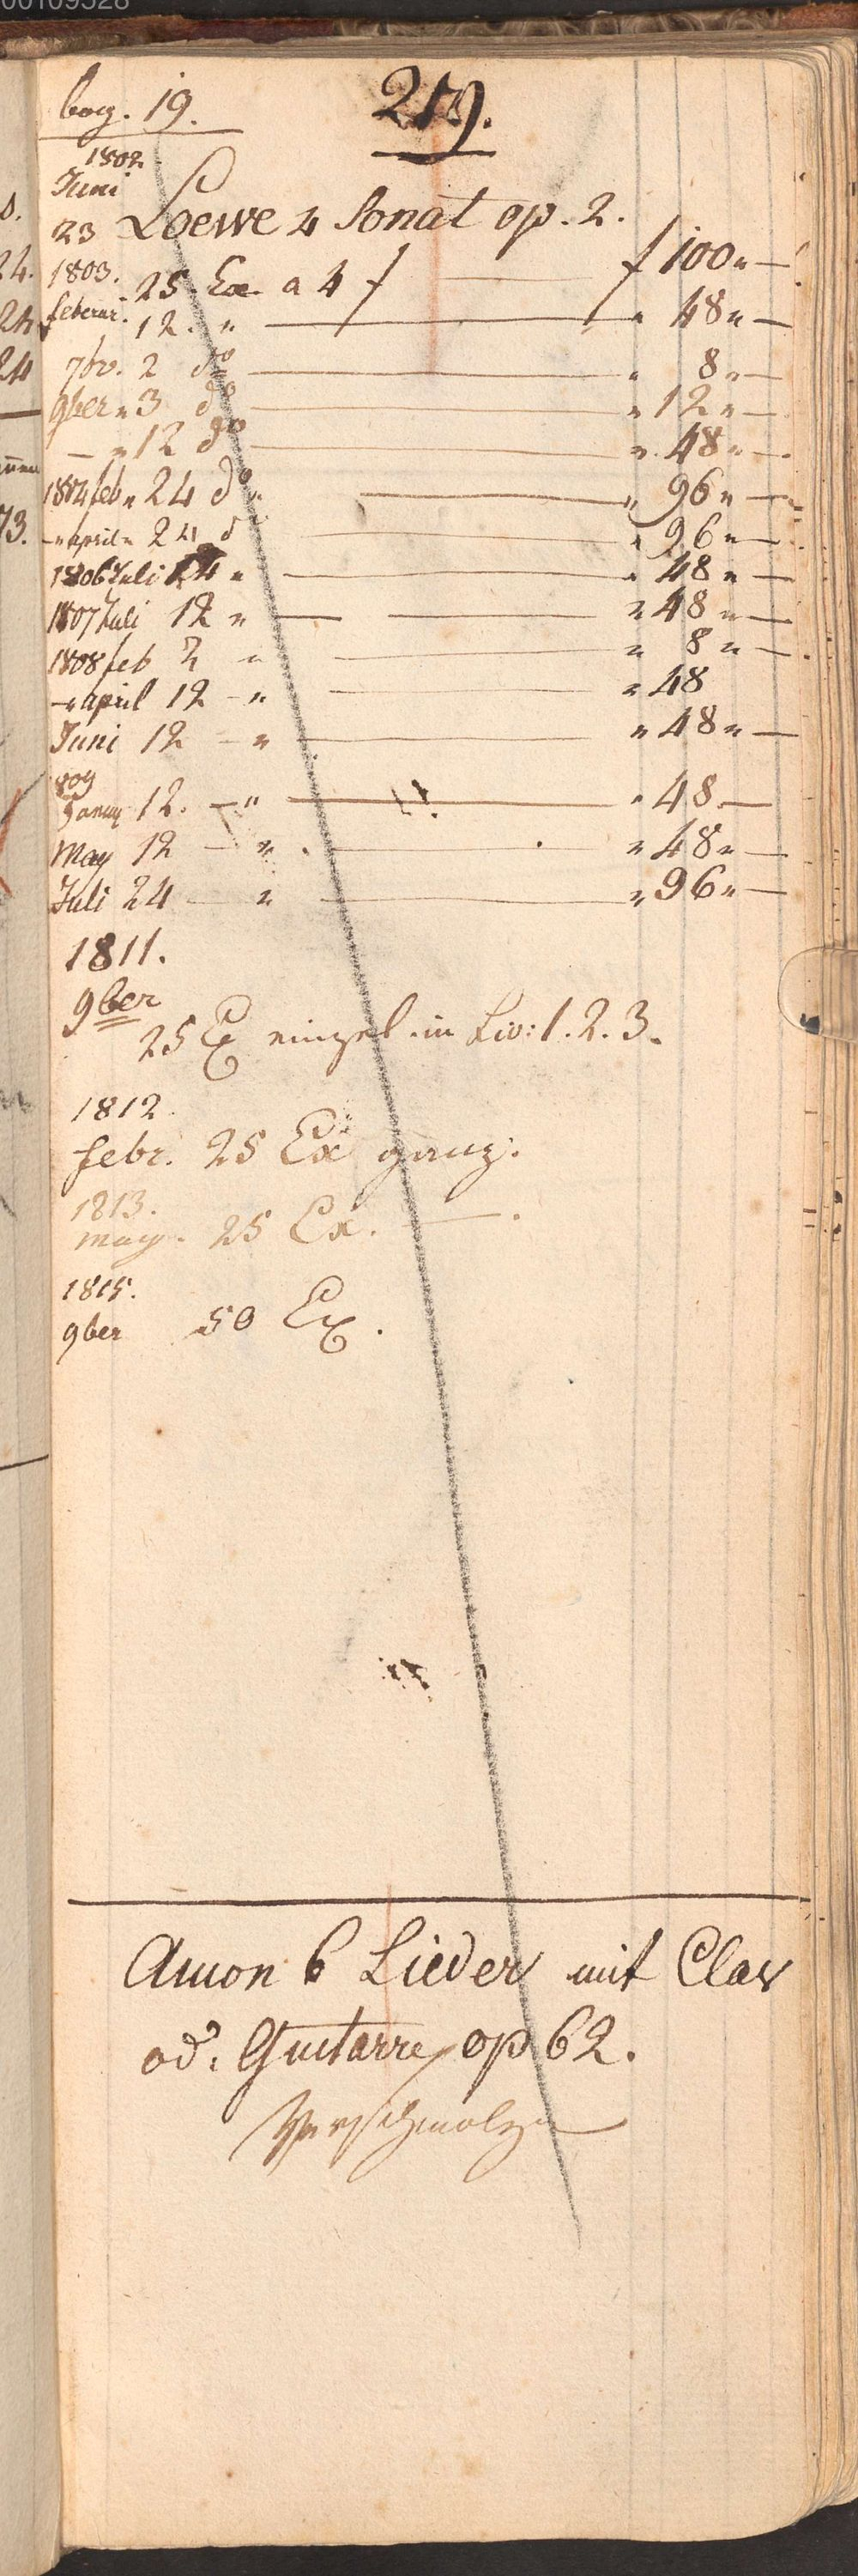 00109528
bog. 19. 219.
1802
Juni
23 Loewe 4 Sonat op. 2.
25 Ex a 4 f f 100 " —
1803.
feberar. 12. " " 48 " —
7br. 2 do " 8 " —
9ber " 3 do " 12 " —
— " 12 do " 48 " —
1804 feb " 24 do " " 96 " —
— " april " 24 d " 96 " —
1806 Juli " " 48 " —
1807 Juli 12 " — " 48 " —
1808 feb 2 " " 8 " —
— " april 12 — " " 48
Juni 12 — " " 48 " —
809
Januy 12. — " " 48 —
May 12 — " " 48 " —
Juli 24 — " " 96 " —
1811.
9ber
25 Ex einzel. in Liv: 1. 2. 3.
1812.
febr. 25 Ex ganz.
1813.
may. 25 Ex. — .
1815.
9ber 50 Ex.
Amon 6 Lieder mit Clav
od. Guitarre op 62.
Verschmolzen